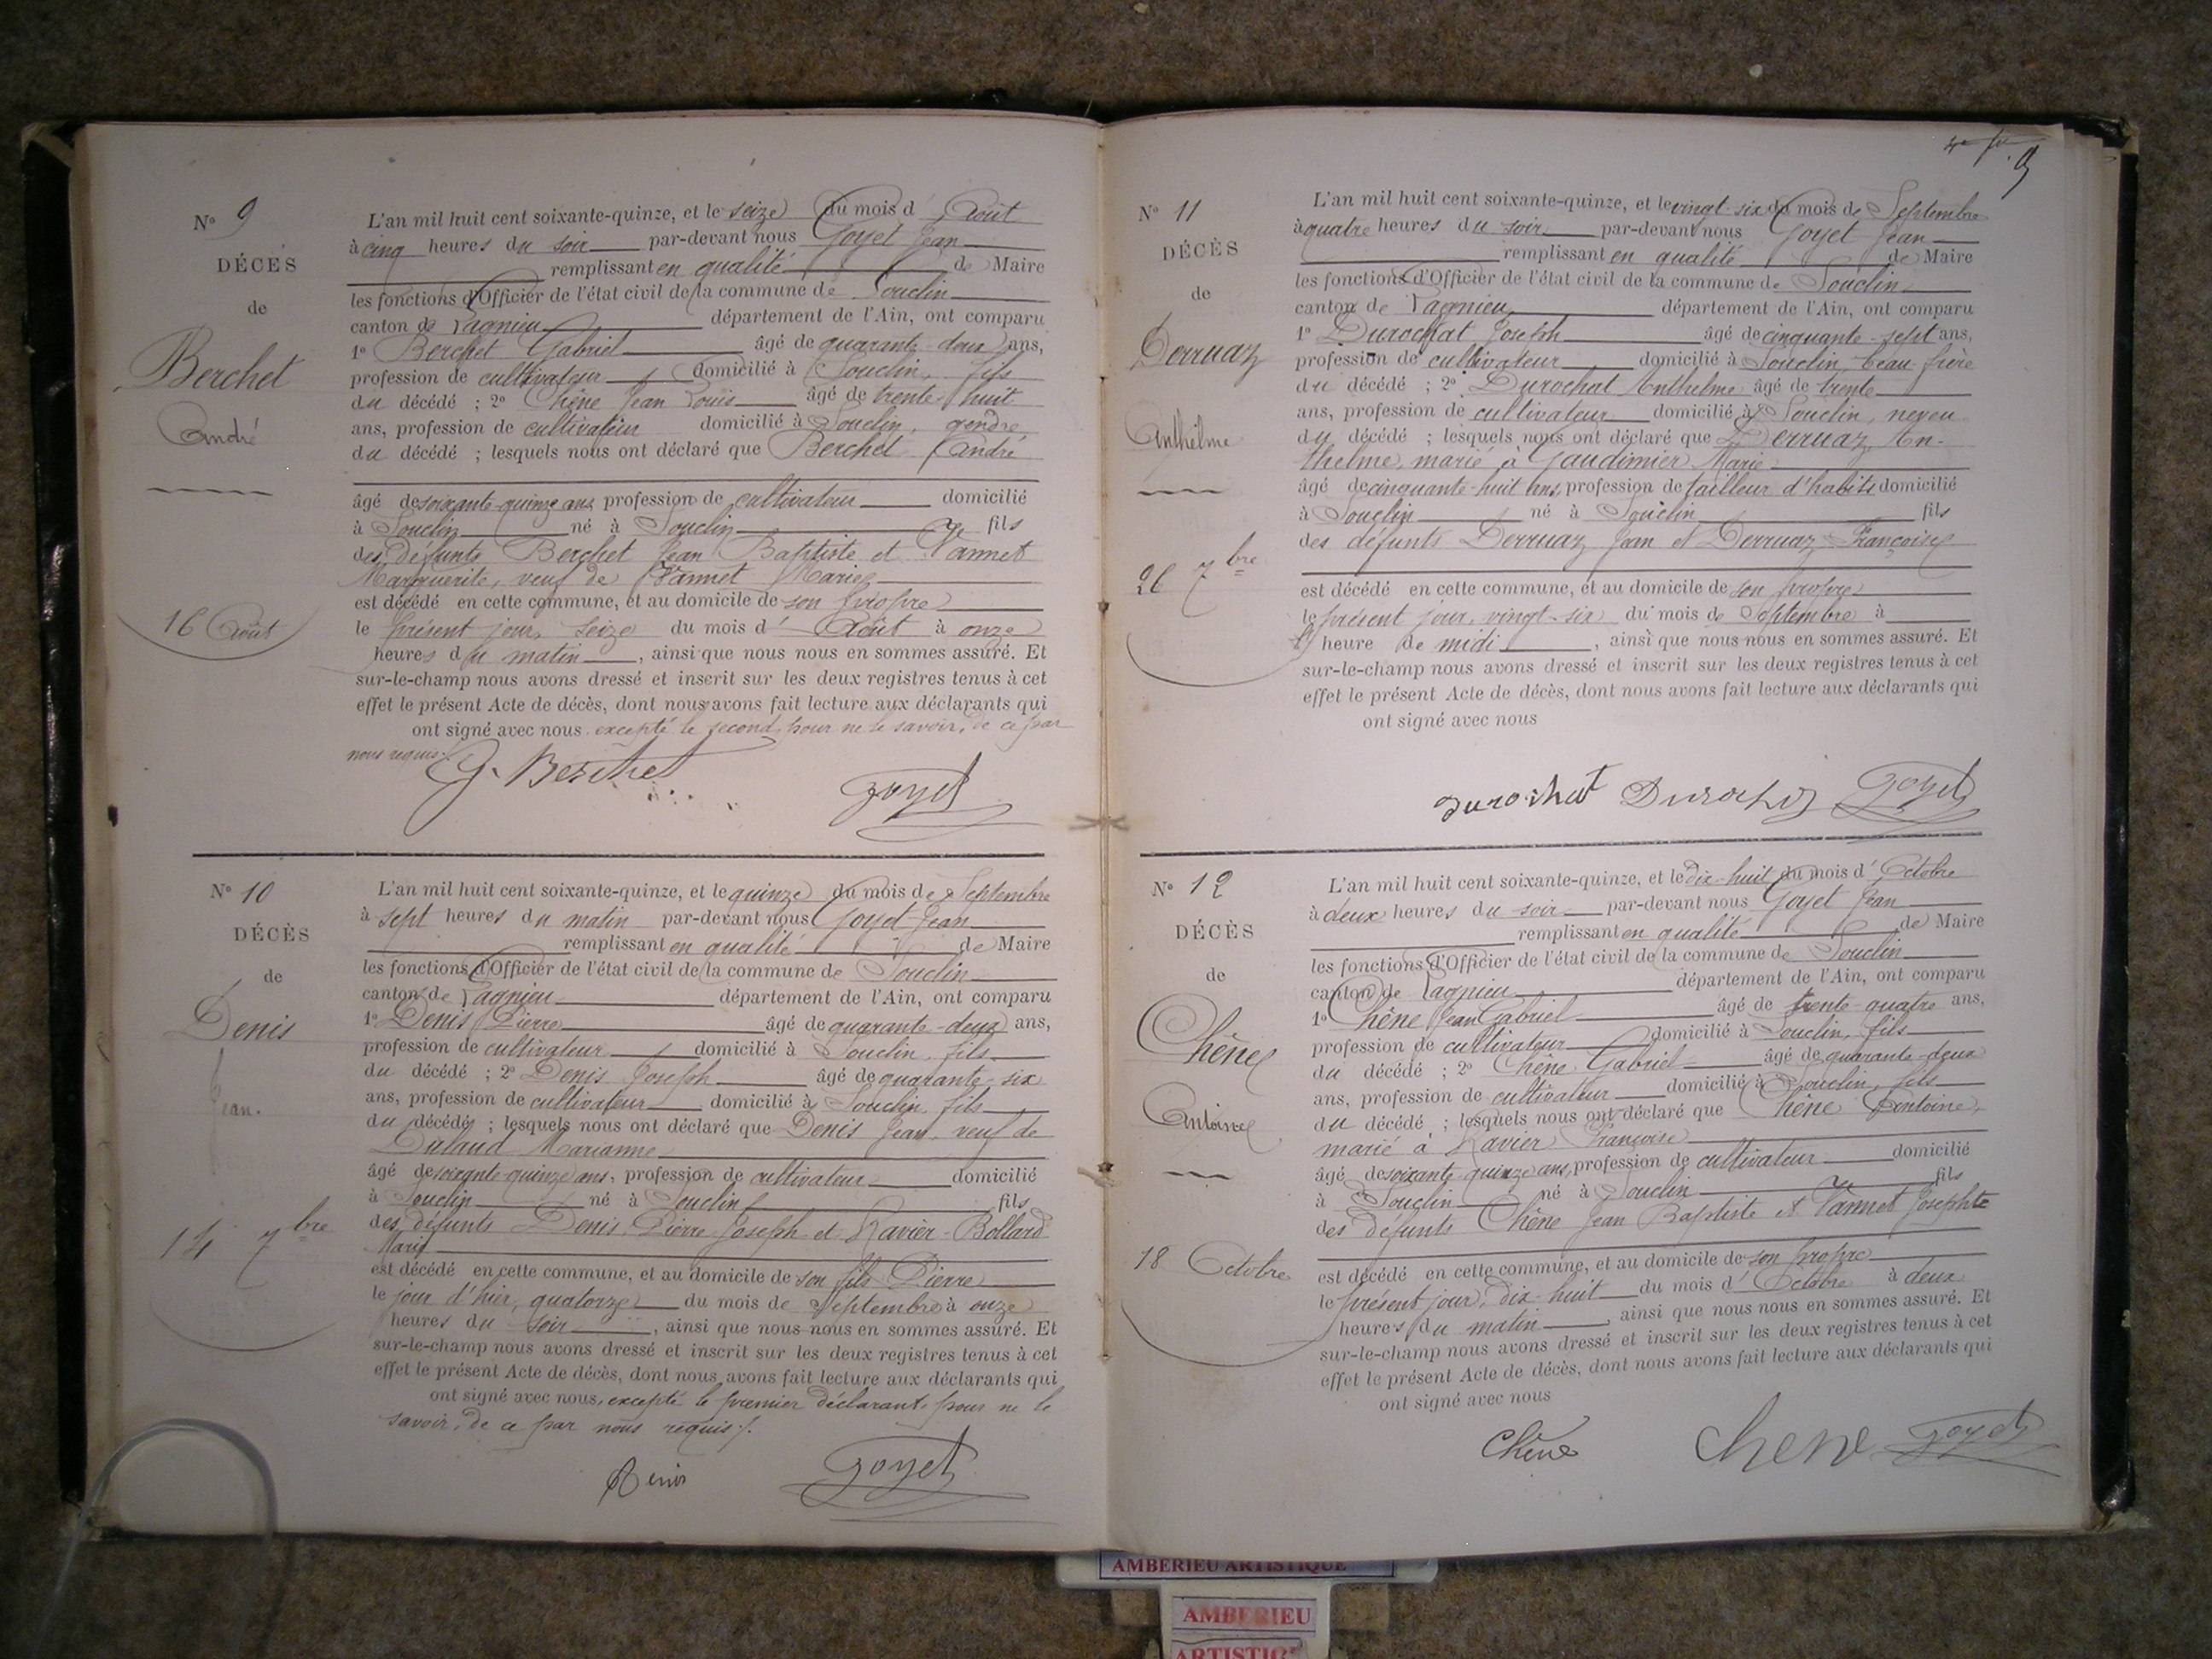 N° 9
DÉCÈS
de
Berchet
André
16 Août
L'an mil huit cent soixante-quinze, et le seize du mois d'Août
à cinq heures du soir par-devant nous Goyet Jean
remplissant en qualité de Maire
les fonctions d'Officier de l'état civil de la commune de Souclin
canton de Lagnieu département de l'Ain, ont comparu
1° Berchet Gabriel âgé de quarante-deux ans,
profession de cultivateur domicilié à Souclin, fils
du décédé ; 2° Chêne Jean Louis âgé de trente-huit
ans, profession de cultivateur domicilié à Souclin, gendre
du décédé ; lesquels nous ont déclaré que Berchet André
âgé de soixante-quinze ans, profession de cultivateur domicilié
à Souclin né à Souclin fils
des défunts Berchet Jean Baptiste et Vannet
Marguerite, veuf de Vannet Marie
est décédé en cette commune, et au domicile de son propre
le présent jour, seize du mois d'Août à onze
heures du matin, ainsi que nous nous en sommes assuré. Et
sur-le-champ nous avons dressé et inscrit sur les deux registres tenus à cet
effet le présent Acte de décès, dont nous avons fait lecture aux déclarants qui
ont signé avec nous excepté le second, pour ne le savoir, de ce par
nous requis./.
G. Berchet Goyet
N° 10
DÉCÈS
de
Denis
Jean.
14 7bre
L'an mil huit cent soixante-quinze, et le quinze du mois de Septembre
à sept heures du matin par-devant nous Goyet Jean
remplissant en qualité de Maire
les fonctions d'Officier de l'état civil de la commune de Souclin
canton de Lagnieu département de l'Ain, ont comparu
1° Denis Pierre âgé de quarante-deux ans,
profession de cultivateur domicilié à Souclin, fils
du décédé ; 2° Denis Joseph âgé de quarante-six
ans, profession de cultivateur domicilié à Souclin, fils
du décédé ; lesquels nous ont déclaré que Denis Jean, veuf de
Marianne
âgé de soixante-quinze ans, profession de cultivateur domicilié
à Souclin né à Souclin fils
des défunts Denis Pierre Joseph et Ravier-Bollard
Marie
est décédé en cette commune, et au domicile de son fils Pierre
le jour d'hier, quatorze du mois de Septembre à onze
heures du soir, ainsi que nous nous en sommes assuré. Et
sur-le-champ nous avons dressé et inscrit sur les deux registres tenus à cet
effet le présent Acte de décès, dont nous avons fait lecture aux déclarants qui
ont signé avec nous, excepté le premier déclarant, pour ne le
savoir, de ce par nous requis./.
Denis Goyet
9
N° 11
DÉCÈS
de
Derruaz
Anthelme
26 7bre
L'an mil huit cent soixante-quinze, et le vingt-six du mois de Septembre
à quatre heures du soir par-devant nous Goyet Jean
remplissant en qualité de Maire
les fonctions d'Officier de l'état civil de la commune de Souclin
canton de Lagnieu département de l'Ain, ont comparu
1° Durochat Joseph âgé de cinquante-sept ans,
profession de cultivateur domicilié à Souclin, beau-frère
du décédé ; 2° Durochat Anthelme âgé de trente
ans, profession de cultivateur domicilié à Souclin, neveu
du décédé ; lesquels nous ont déclaré que Derruaz An-
thelme, marié à Gaudimier Marie
âgé de cinquante-huit ans, profession de tailleur d'habits domicilié
à Souclin né à Souclin fils
des défunts Derruaz Jean et Derruaz Françoise
est décédé en cette commune, et au domicile de son propre
le présent jour, vingt-six du mois de Septembre à
l'heure de midi, ainsi que nous nous en sommes assuré. Et
sur-le-champ nous avons dressé et inscrit sur les deux registres tenus à cet
effet le présent Acte de décès, dont nous avons fait lecture aux déclarants qui
ont signé avec nous
Durochat Durochat Goyet
N° 12
DÉCÈS
de
Chêne
Antoine
18 Octobre
L'an mil huit cent soixante-quinze, et le dix-huit du mois d'Octobre
à deux heures du soir par-devant nous Goyet Jean
remplissant en qualité de Maire
les fonctions d'Officier de l'état civil de la commune de Souclin
canton de Lagnieu département de l'Ain, ont comparu
1° Chêne Jean Gabriel âgé de trente-quatre ans,
profession de cultivateur domicilié à Souclin, fils
du décédé ; 2° Chêne Gabriel âgé de quarante-deux
ans, profession de cultivateur domicilié à Souclin, fils
du décédé ; lesquels nous ont déclaré que Chêne Antoine,
marié à Ravier Françoise
âgé de soixante-quinze ans, profession de cultivateur domicilié
à Souclin né à Souclin fils
des défunts Chêne Jean Baptiste et Vannet Josephte
est décédé en cette commune, et au domicile de son propre
le présent jour, dix-huit du mois d'Octobre à deux
heures du matin, ainsi que nous nous en sommes assuré. Et
sur-le-champ nous avons dressé et inscrit sur les deux registres tenus à cet
effet le présent Acte de décès, dont nous avons fait lecture aux déclarants qui
ont signé avec nous
Chêne Chene Goyet
AMBERIEU ARTISTIQUE
AMBERIEU
ARTISTIQ